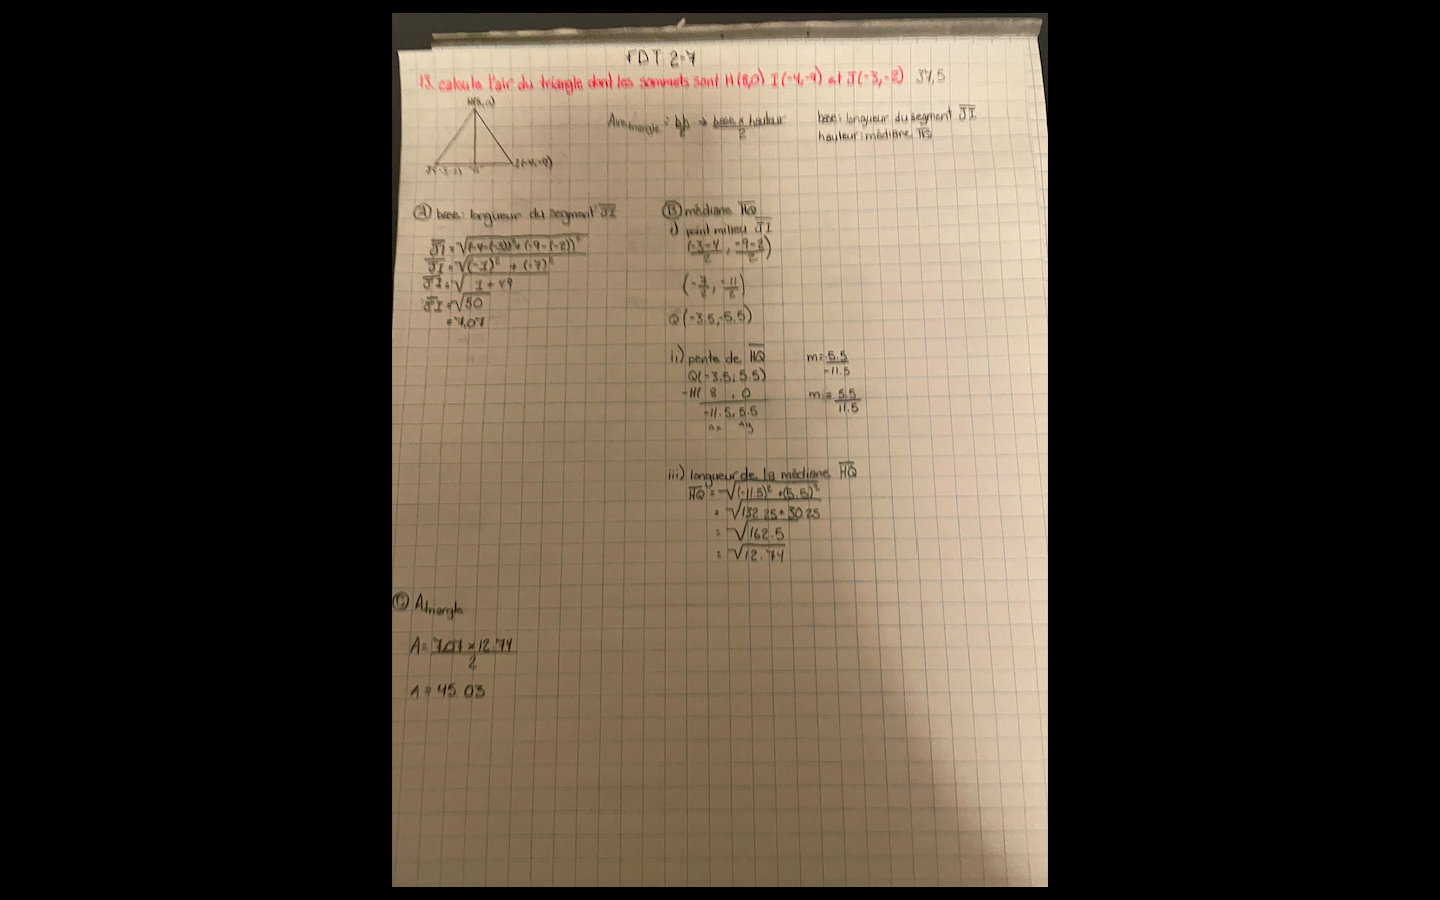 FDT 2-7
13. calcule l'air du triangle dont les sommets sont H(8,0) I(-4,-9) et J(-3,-2) 37,5
H(8,0)
J(-3,-2) I(-4,-9)
Aire triangle = bh/2 → base x hauteur/2
base: longueur du segment JI
hauteur: médiane HQ
Ⓐ base: longueur du segment JI
JI = √(-4-(-3))² + (-9-(-2))²
JI = √(-1)² + (-7)²
JI = √1 + 49
JI = √50
= 7,07
Ⓑ médiane HQ
i) point milieu JI
(-3-4/2, -9-2/2)
(-7/2, -11/2)
Q(-3.5,-5.5)
ii) pente de HQ
Q(-3.5, 5.5)
-H( 8 , 0
-11.5, 5.5
Δx Δy
m = 5.5/-11.5
m = 5.5/11.5
iii) longueur de la médiane HQ
HQ = √(-11.5)² + (5.5)²
= √132.25 + 30.25
= √162.5
= √12.74
Ⓒ A triangle
A = 7.07 x 12.74/2
A = 45.03